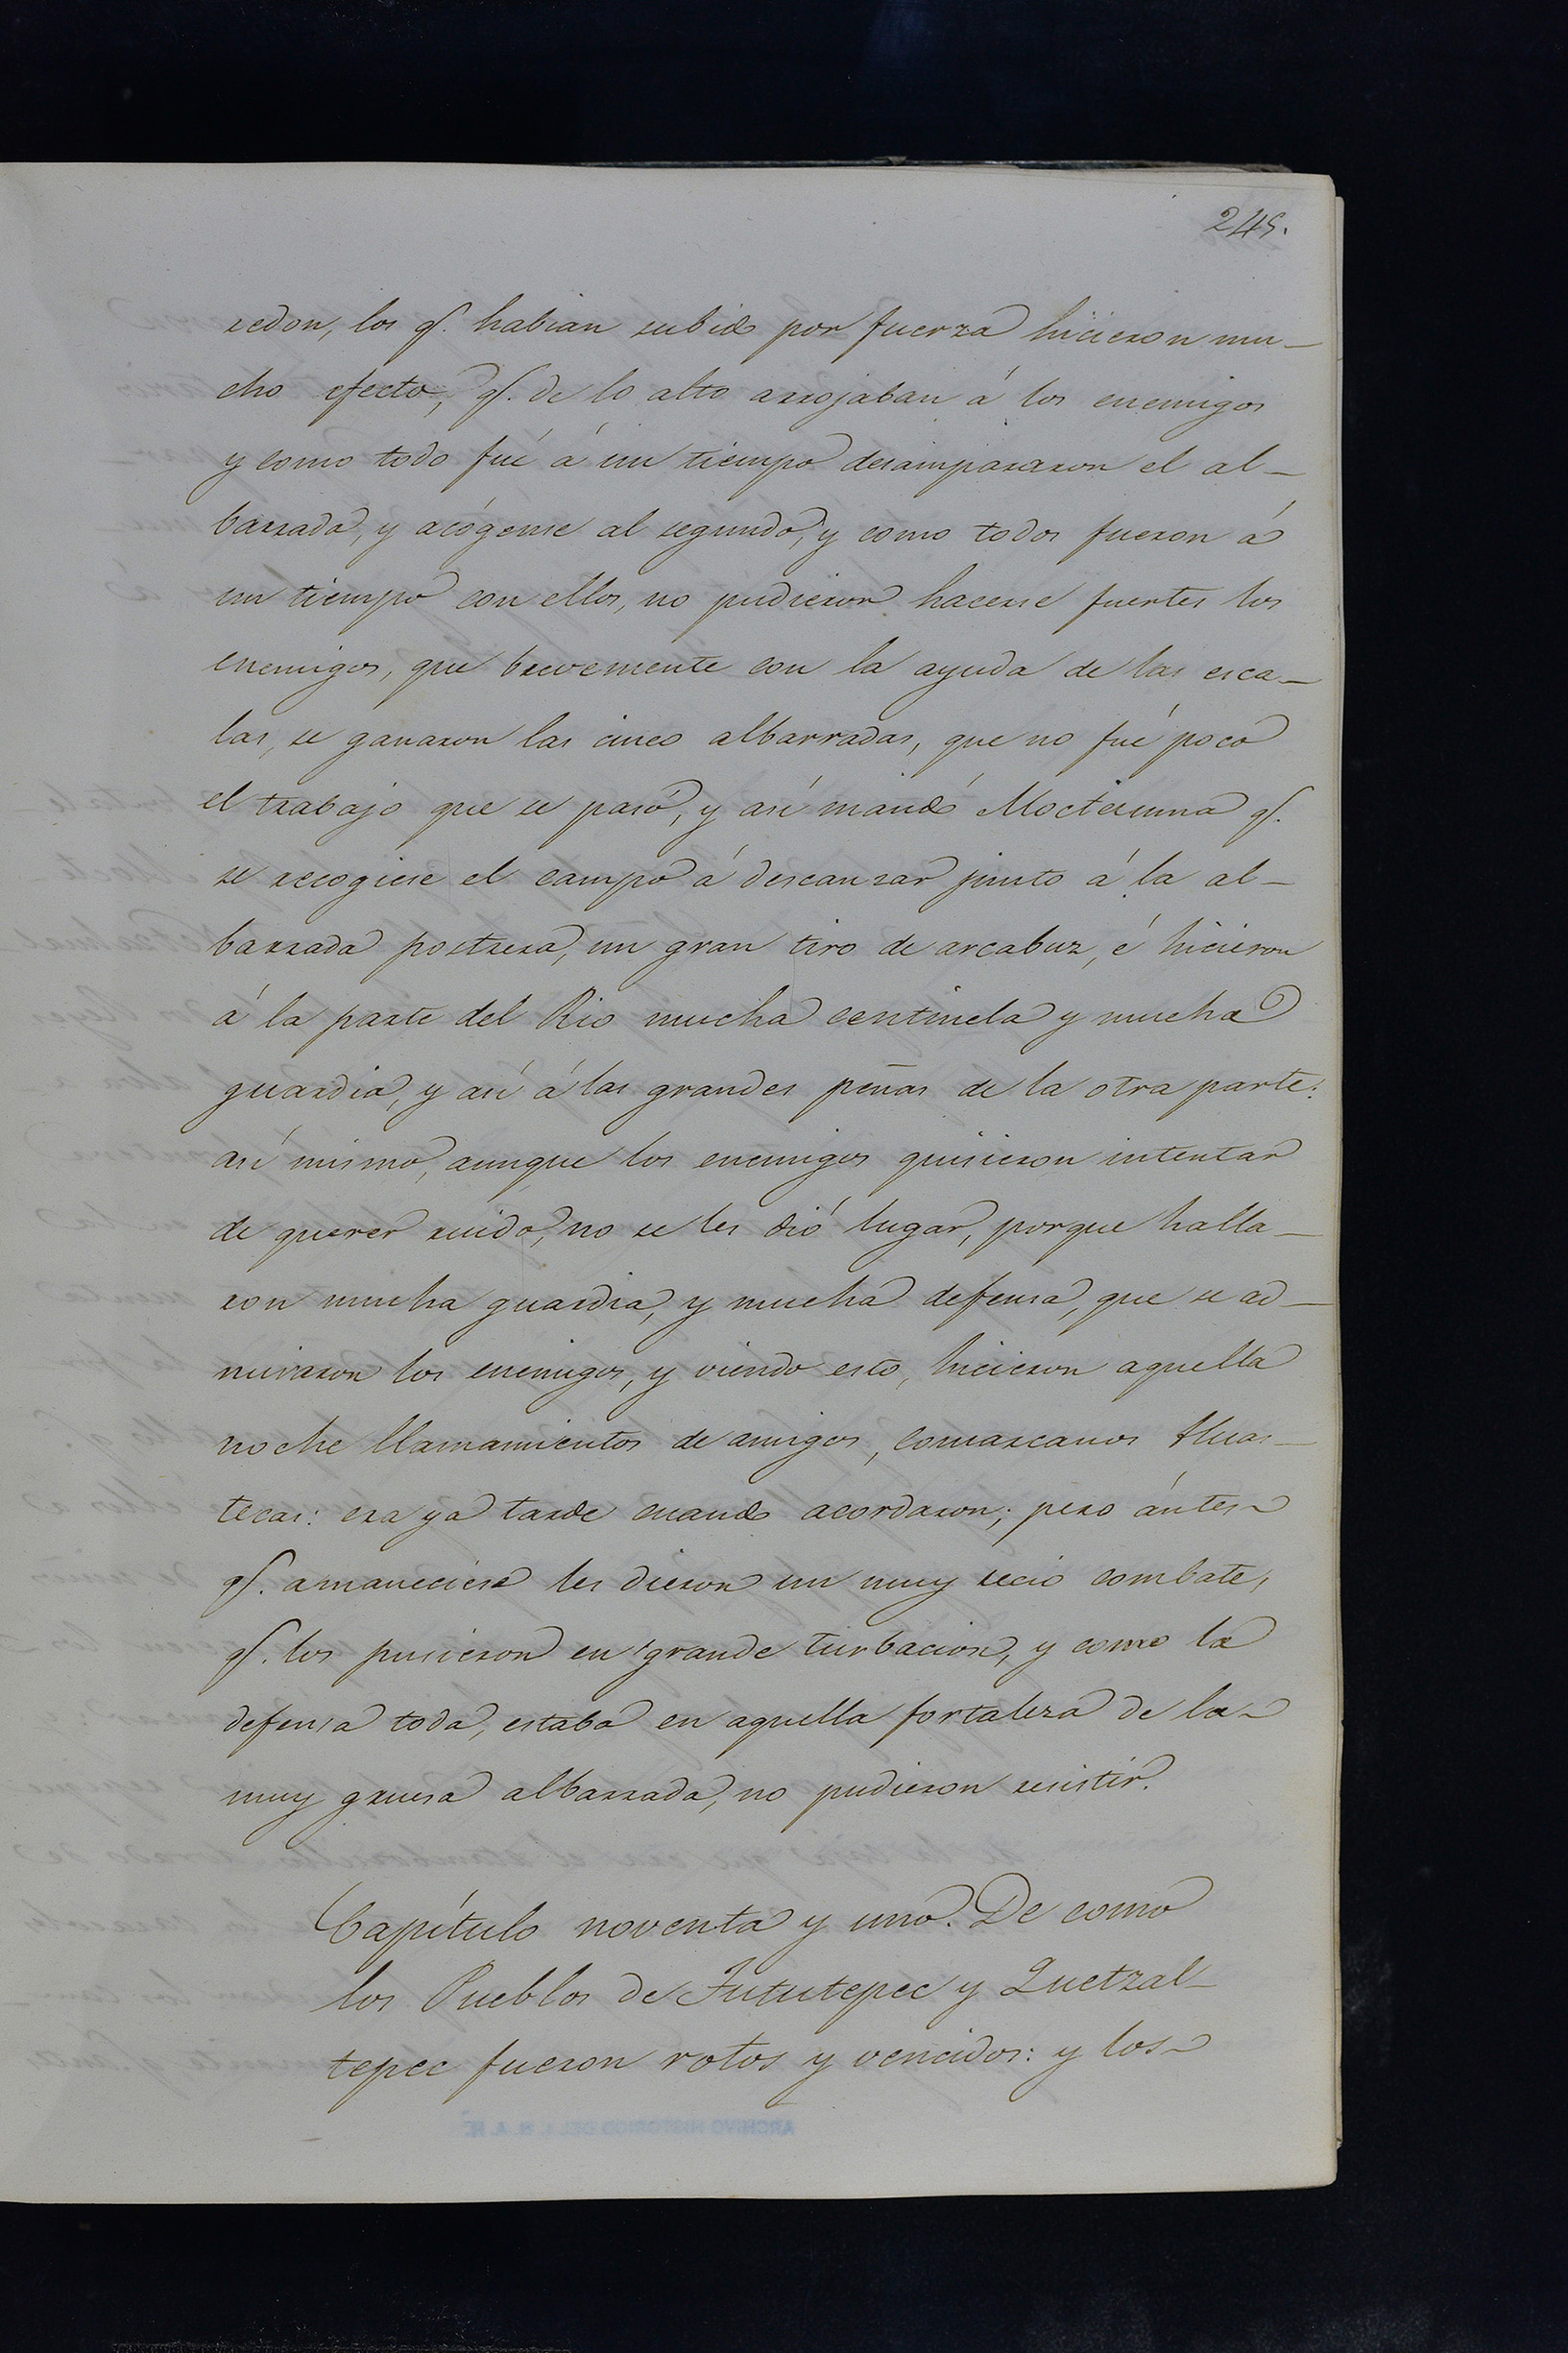 245.
redon, los q. habian subido por fuerza hicieron mu-
cho efecto, q. de lo alto arrojaban á los enemigos
y como todo fué á un tiempo desampararon el al-
barrada, y acógense al segundo, y como todos fueron á
un tiempo con ellos, no pudieron hacerse fuertes los
enemigos, que brevemente con la ayuda de las esca-
las, se ganaron las cinco albarradas, que no fué poco
el trabajo que se pasó, y así mandó Moctezuma q.
se recogiese el campo á descanzar junto á la al-
barrada postrera, un gran tiro de arcabuz, é hicieron
á la parte del Rio mucha centinela y mucha
guardia, y así á las grandes peñas de la otra parte:
así mismo, aunque los enemigos quisieron intentar
de querer ruido, no se les dió lugar, porque halla-
ron mucha guardia, y mucha defensa, que se ad-
miraron los enemigos, y viendo esto, hicieron aquella
noche llamamientos de amigos, comarcanos Huas-
tecas: era ya tarde cuando acordaron; pero ántes
q. amaneciese les dieron un muy recio combate,
q. los pusieron en grande turbacion, y como la
defensa toda, estaba en aquella fortaleza de la
muy gruesa albarrada, no pudieron resistir.
Capítulo noventa y uno. De como
los Pueblos de Tututepec y Quetzal-
tepec fueron rotos y vencidos: y los